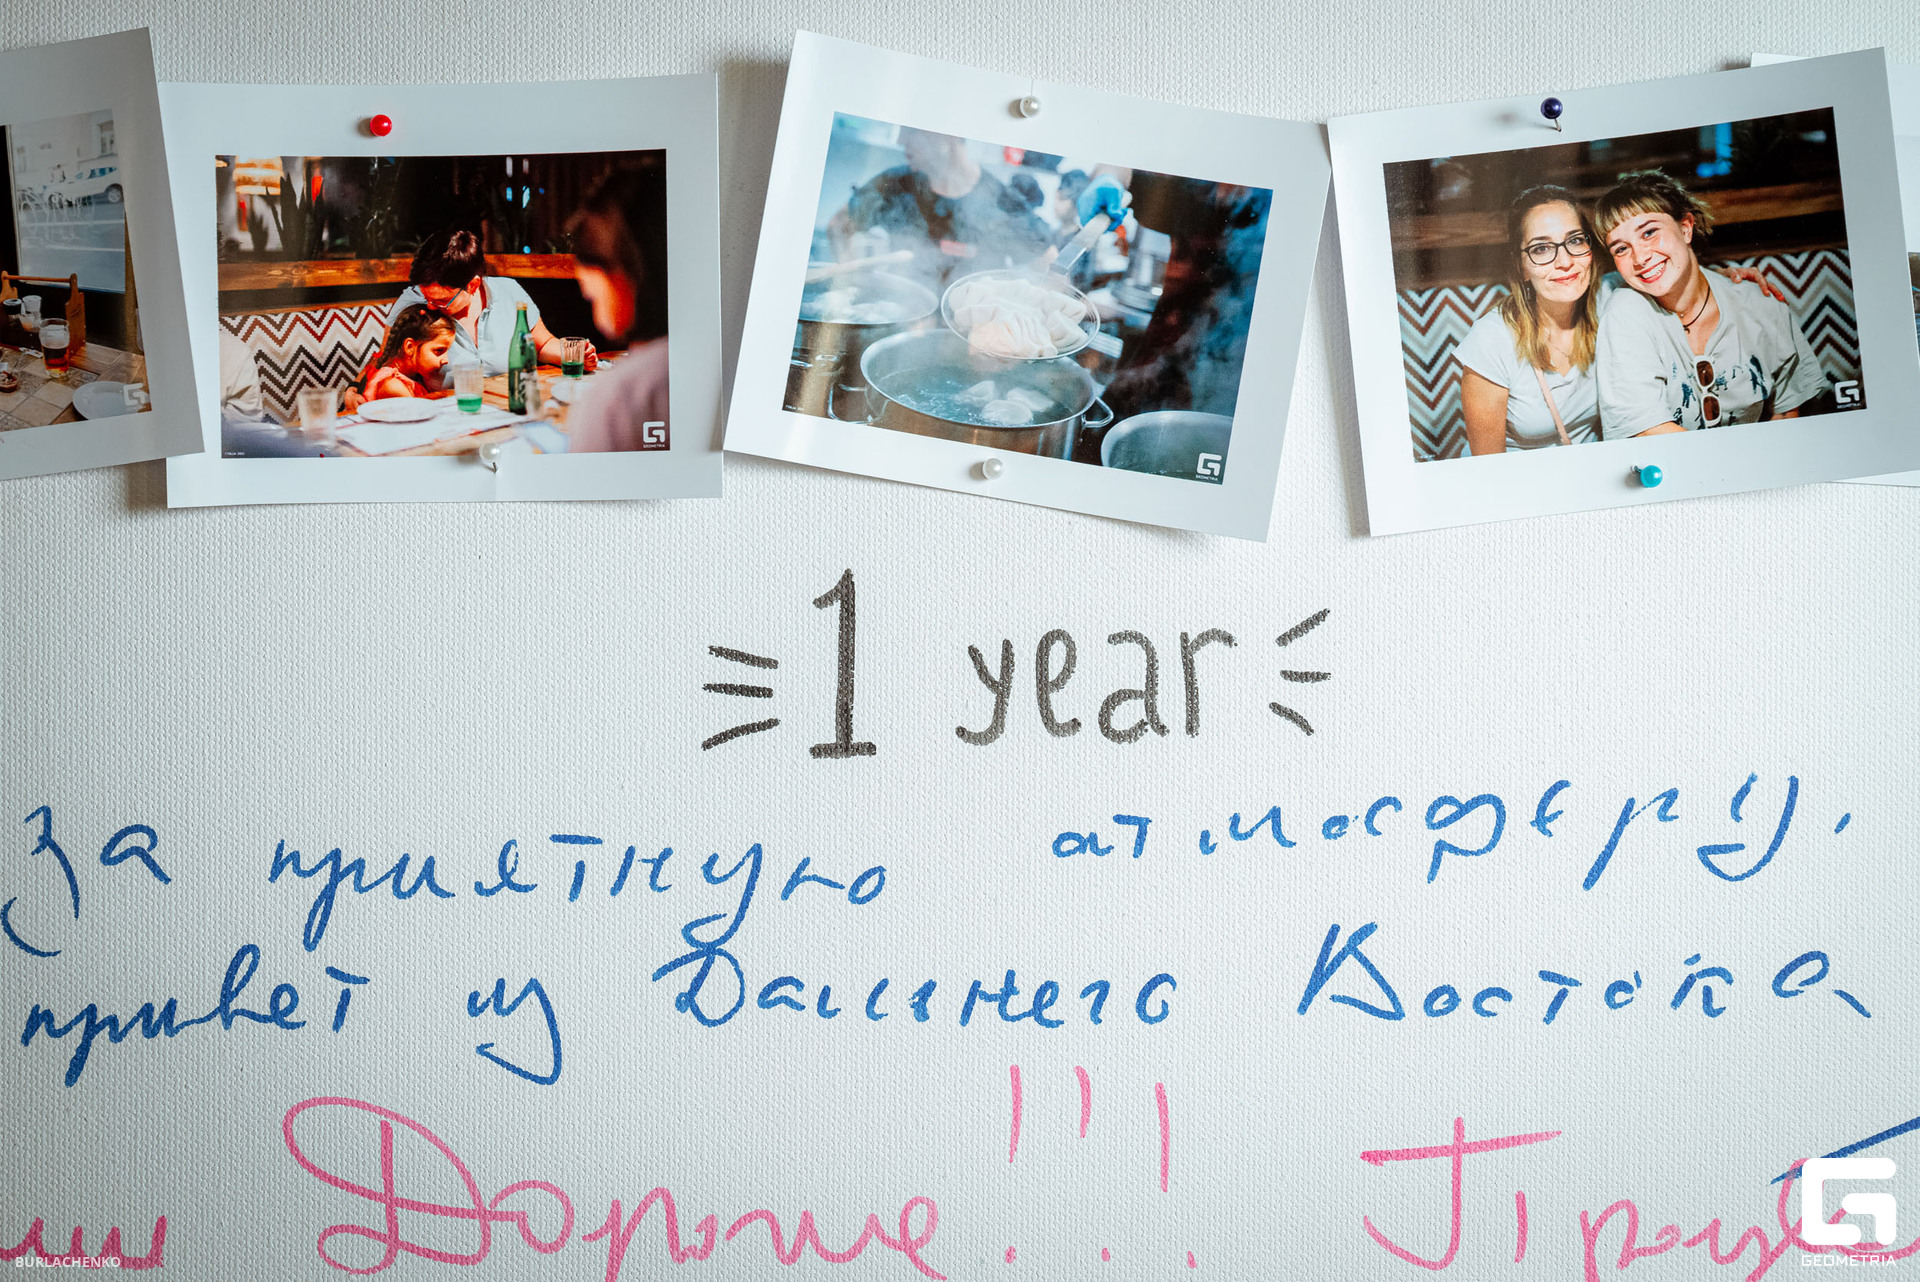 1 year
За приятную атмосферу,
привет из Дальнего Востока
Дорогие!!!
BURLACHENKO
GEOMETRIA